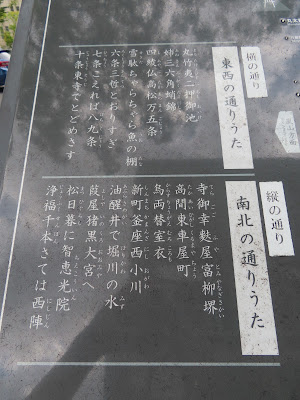 横の通り
東西の通りうた
丸竹夷二押御池
姉三六角蛸錦
四綾仏高松万五条
雪駄ちゃらちゃら魚の棚
六条三哲とおりすぎ
七条こえれば八九条
十条東寺でとどめさす
縦の通り
南北の通りうた
寺御幸麩屋富柳堺
高間東車屋町
烏両替室衣
新町釜座西小川
油醒井で堀川の水
葭屋猪黒大宮へ
松日暮に智恵光院
浄福千本さては西陣